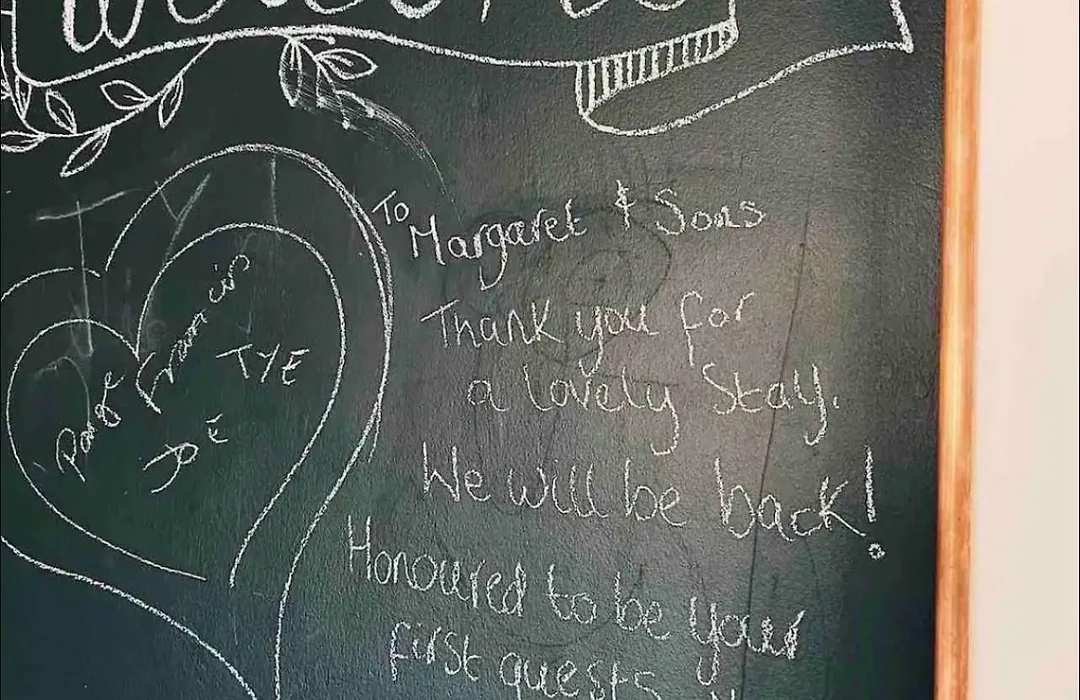 Welcome
To Margaret & Sons
Thank you for
a lovely Stay.
We will be back!
Honoured to be your
first guests
Francis
TYE